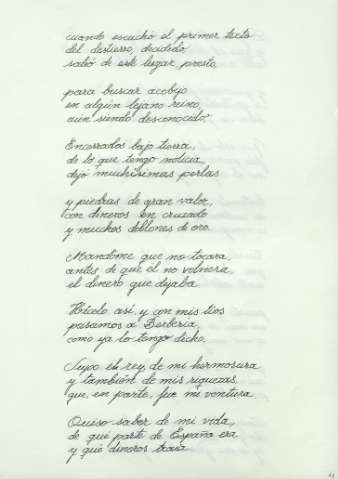 cuando escuchó el primer texto
del destierro, decidido,
salió de este lugar presto,
para buscar acobijo
en algún lejano reino,
aún siendo desconocido.
Encerrados bajo tierra,
de lo que tengo noticia,
dejó muchísimas perlas
y piedras de gran valor,
con dineros en cruzado
y muchos doblones de oro.
Mandóme que no tocara,
antes de que él no volviera,
el dinero que dejaba.
Hícelo así, y con mis tíos
pasamos a Berbería,
como ya lo tengo dicho.
Supo el rey de mi hermosura
y también de mis riquezas
que, en parte, fue mi ventura.
Quiso saber de mi vida,
de qué parte de España era
y qué dineros traía.